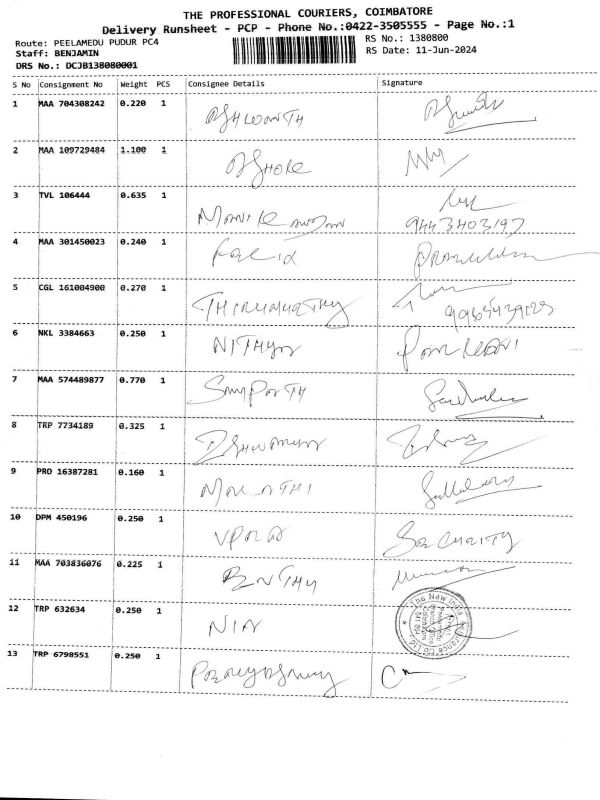 THE PROFESSIONAL COURIERS, COIMBATORE
Delivery Runsheet - PCP - Phone No.:0422-3505555 - Page No.:1
Route: PEELAMEDU PUDUR PC4
RS No.: 1380800
Staff: BENJAMIN
RS Date: 11-Jun-2024
DRS No.: DCJB138080001
S No Consignment No Weight PCS Consignee Details Signature
1 MAA 704308242 0.220 1 ASHWANTH
2 MAA 109729484 1.100 1 ASHOK
3 TVL 106444 0.635 1 MANIKANDAN
9443403197
4 MAA 301450023 0.240 1
5 CGL 161004900 0.270 1 THIRUMURTHY
6 NKL 3384663 0.250 1 NITHYA
7 MAA 574489877 0.770 1 SAMPATH
8 TRP 7734189 0.325 1
9 PRO 16387281 0.160 1 MALATHI
10 DPM 450196 0.250 1 SECURITY
11 MAA 703836076 0.225 1
12 TRP 632634 0.250 1 NIA
The New India Assurance Co. Ltd.
13 TRP 6798551 0.250 1